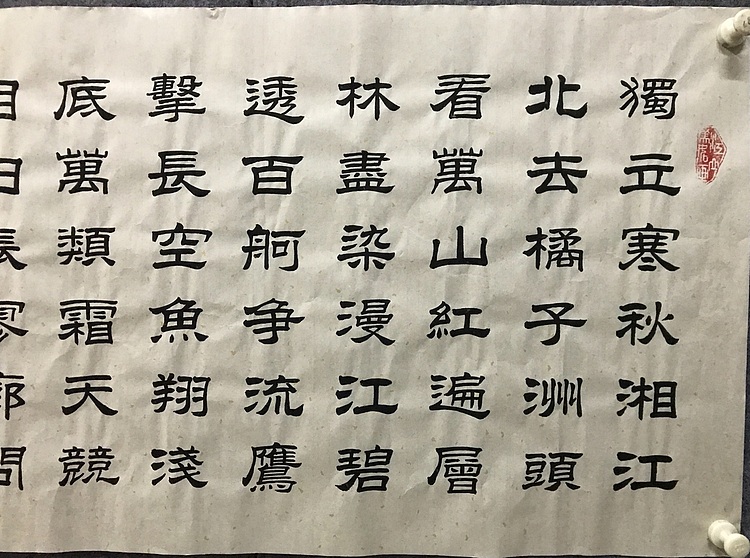 獨立寒秋湘江
北去橘子洲頭
看萬山紅遍層
林盡染漫江碧
透百舸争流鷹
擊長空魚翔淺
底萬類霜天競